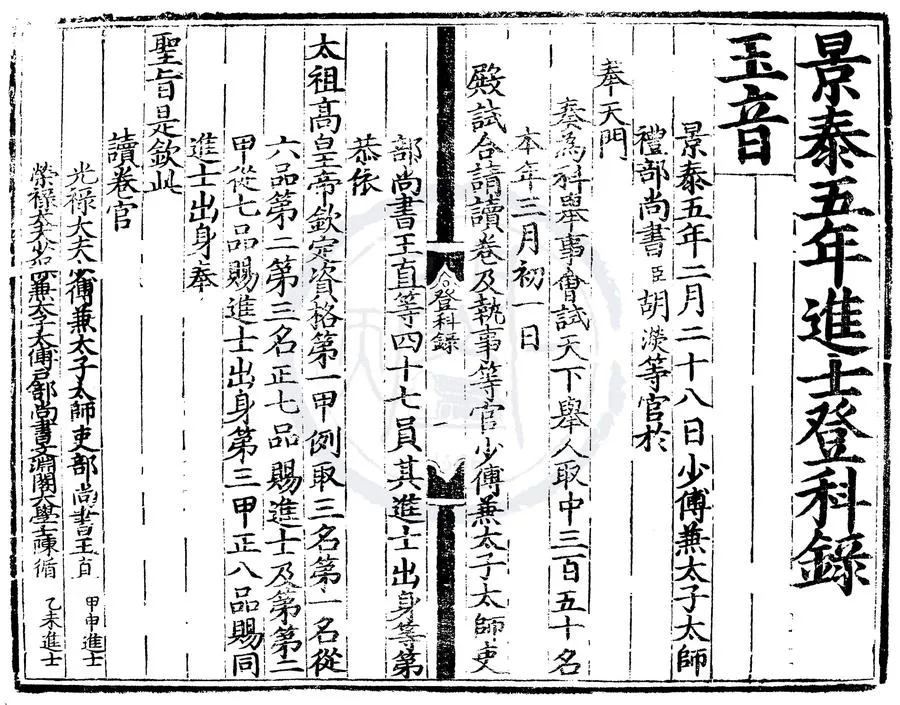 景泰五年進士登科錄
玉音
景泰五年二月二十八日少傅兼太子太師
禮部尚書臣胡濙等官於
奉天門
奏為科舉事會試天下舉人取中三百五十名
本年三月初一日
殿試合請讀卷及執事等官少傅兼太子太師吏
登科錄
一
部尚書王直等四十七員其進士出身等第
恭依
太祖高皇帝欽定資格第一甲例取三名第一名從
六品第二第三名正七品賜進士及第第二
甲從七品賜進士出身第三甲正八品賜同
進士出身奉
聖旨是欽此
讀卷官
光祿大夫少傅兼太子太師吏部尚書王直 甲申進士
榮祿大夫少 兼太子太傅戶部尚書文淵閣大學士陳循 乙未進士